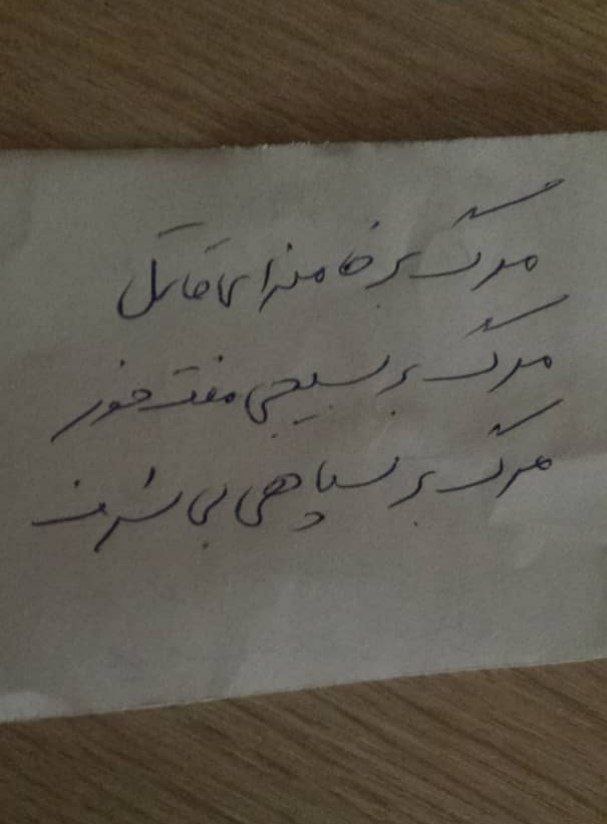 مرگ بر خامنه‌ای قاتل
مرگ بر بسیجی مفت خور
مرگ بر سپاهی بی شرف